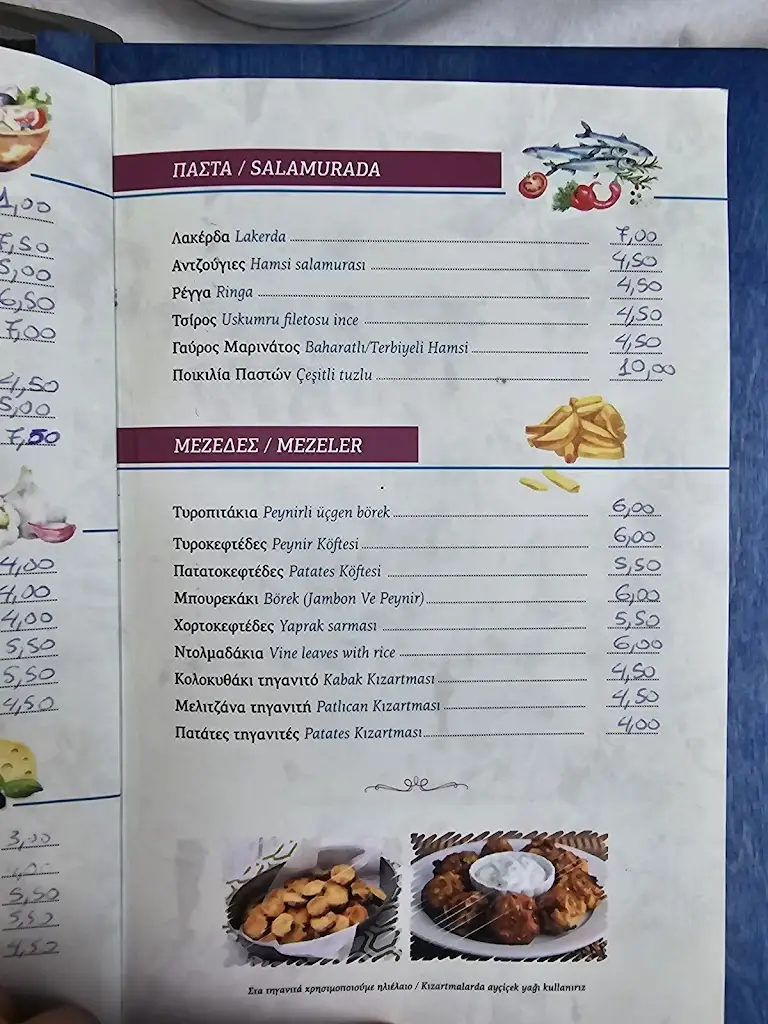 1,00
7,50
5,00
6,50
7,00
4,50
5,00
7,50
4,00
4,00
4,00
5,50
5,50
4,50
3,00
5,50
5,50
4,50
ΠΑΣΤΑ / SALAMURADA
Λακέρδα Lakerda 7,00
Αντζούγιες Hamsi salamurası 4,50
Ρέγγα Ringa 4,50
Τσίρος Uskumru filetosu ince 4,50
Γαύρος Μαρινάτος Baharatlı/Terbiyeli Hamsi 4,50
Ποικιλία Παστών Çeşitli tuzlu 10,00
ΜΕΖΕΔΕΣ / MEZELER
Τυροπιτάκια Peynirli üçgen börek 6,00
Τυροκεφτέδες Peynir Köftesi 6,00
Πατατοκεφτέδες Patates Köftesi 5,50
Μπουρεκάκι Börek (Jambon Ve Peynir) 6,00
Χορτοκεφτέδες Yaprak sarması 5,50
Ντολμαδάκια Vine leaves with rice 6,00
Κολοκυθάκι τηγανιτό Kabak Kızartması 4,50
Μελιτζάνα τηγανιτή Patlıcan Kızartması 4,50
Πατάτες τηγανιτές Patates Kızartması 4,00
Στα τηγανιτά χρησιμοποιούμε ηλιέλαιο / Kızartmalarda ayçiçek yağı kullanırız